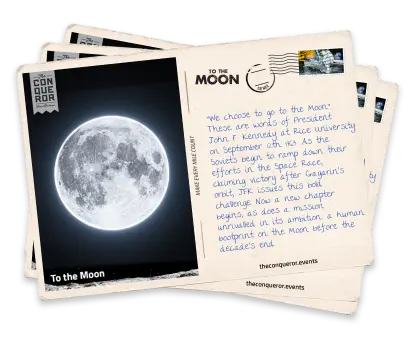 The
CON
QUE
ROR
TO THE
MOON
"We choose to go to the Moon."
These are words of President
John F. Kennedy at Rice University
on September 12th, 1961. As the
Soviets begin to ramp down their
efforts in the Space Race,
claiming victory after Gagarin's
orbit, JFK issues this bold
challenge. Now a new chapter
begins, as does a mission
unrivalled in its ambition; a human
bootprint on the Moon before the
decade's end.
MAKE EVERY MILE COUNT
To the Moon
theconqueror.events
theconqueror.events